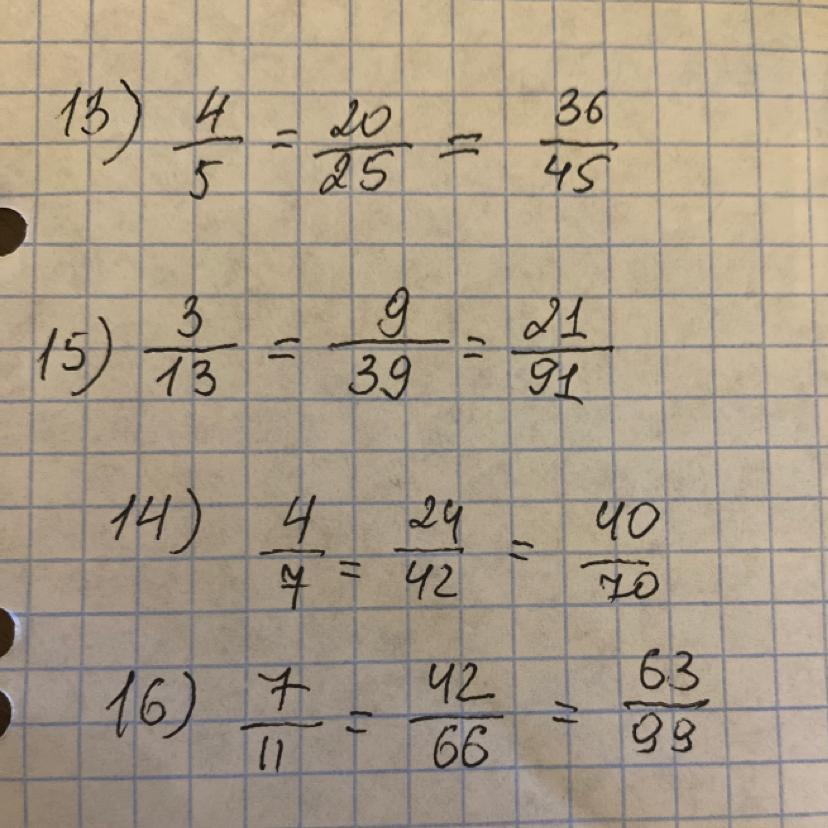 13) 4/5 = 20/25 = 36/45
15) 3/13 = 9/39 = 21/91
14) 4/7 = 24/42 = 40/70
16) 7/11 = 42/66 = 63/99